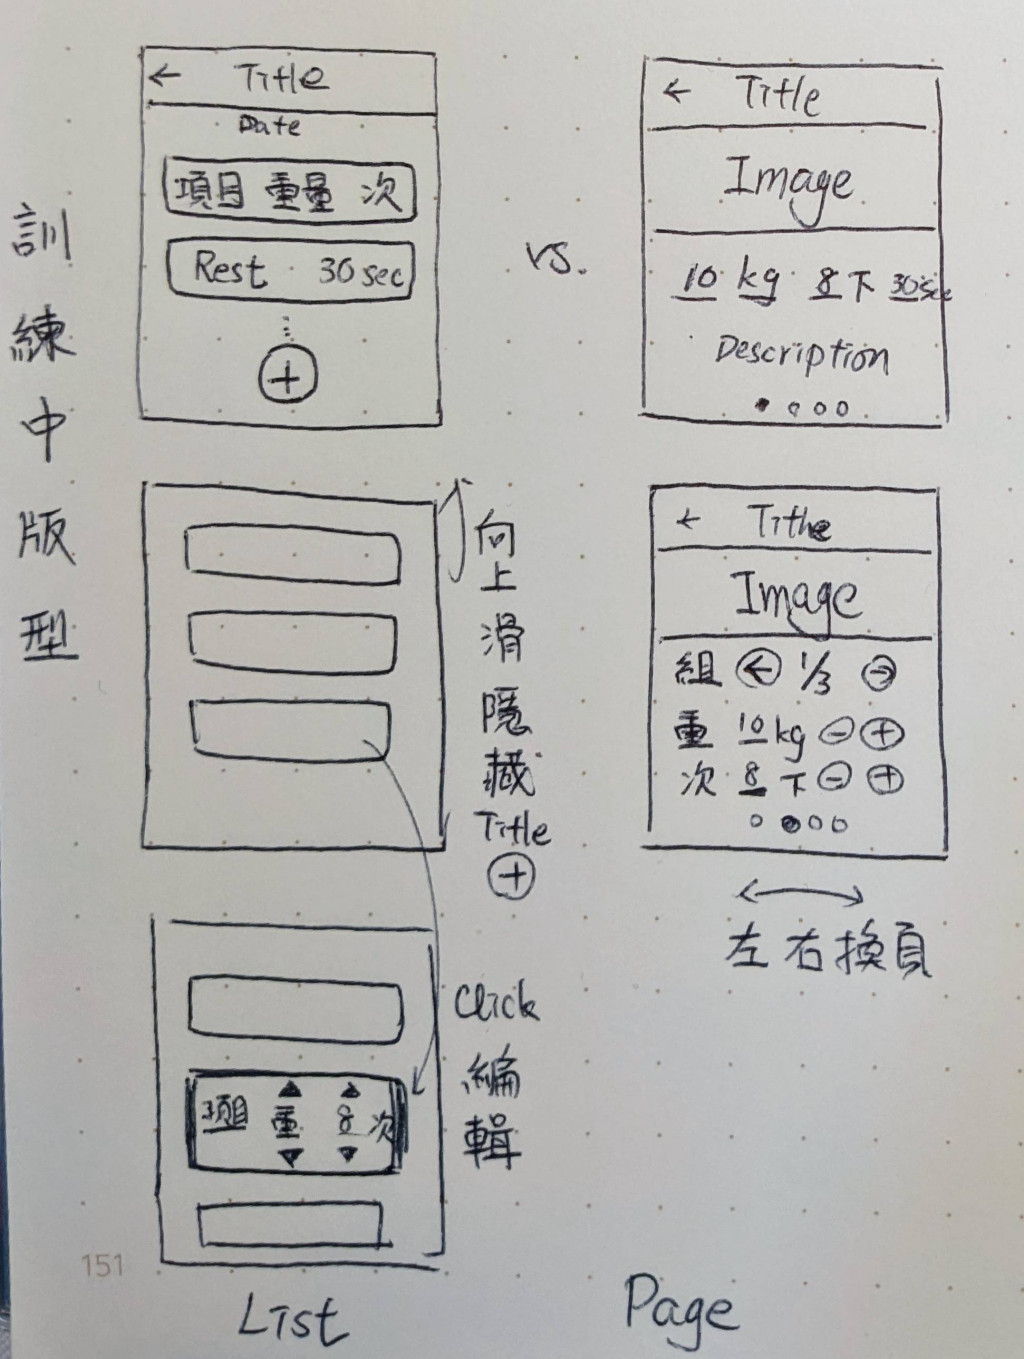 訓練中版型
← Title
Date
項目 重量 次
Rest 30 sec
+
vs.
← Title
Image
10 kg 8下 30sec
Description
向上滑隱藏
Title
+
← Title
Image
組 ← 1/3 →
重 10 kg - +
次 8 下 - +
左右換頁
Click
編輯
項目 重 8 次
151
List
Page